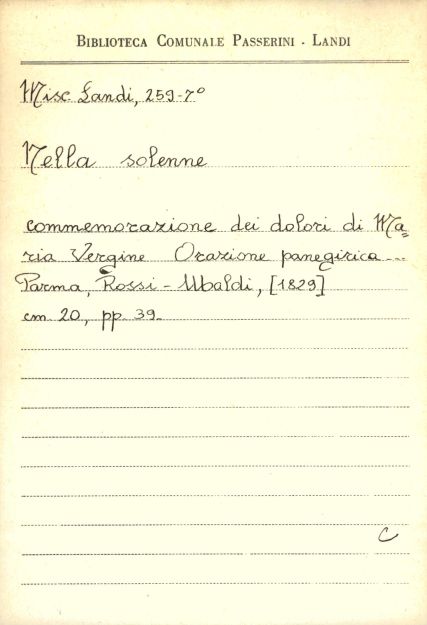 BIBLIOTECA COMUNALE PASSERINI - LANDI
Misc. Landi, 259-7°
Nella solenne
commemorazione dei dolori di Ma=
ria Vergine Orazione panegirica...
Parma, Rossi - Ubaldi, [1829]
cm 20, pp. 39.
C